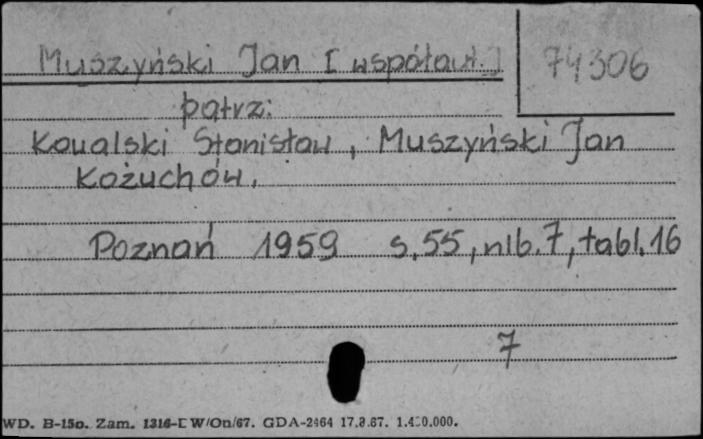 Muszyński Jan [współaut.]
74306
patrz:
Kowalski Stanisław, Muszyński Jan
Kożuchów.
Poznań 1959 s.55, nlb.7, tabl.16
7
WD. B-15o. Zam. 1316-I W/On/67. GDA-2464 17.8.67.